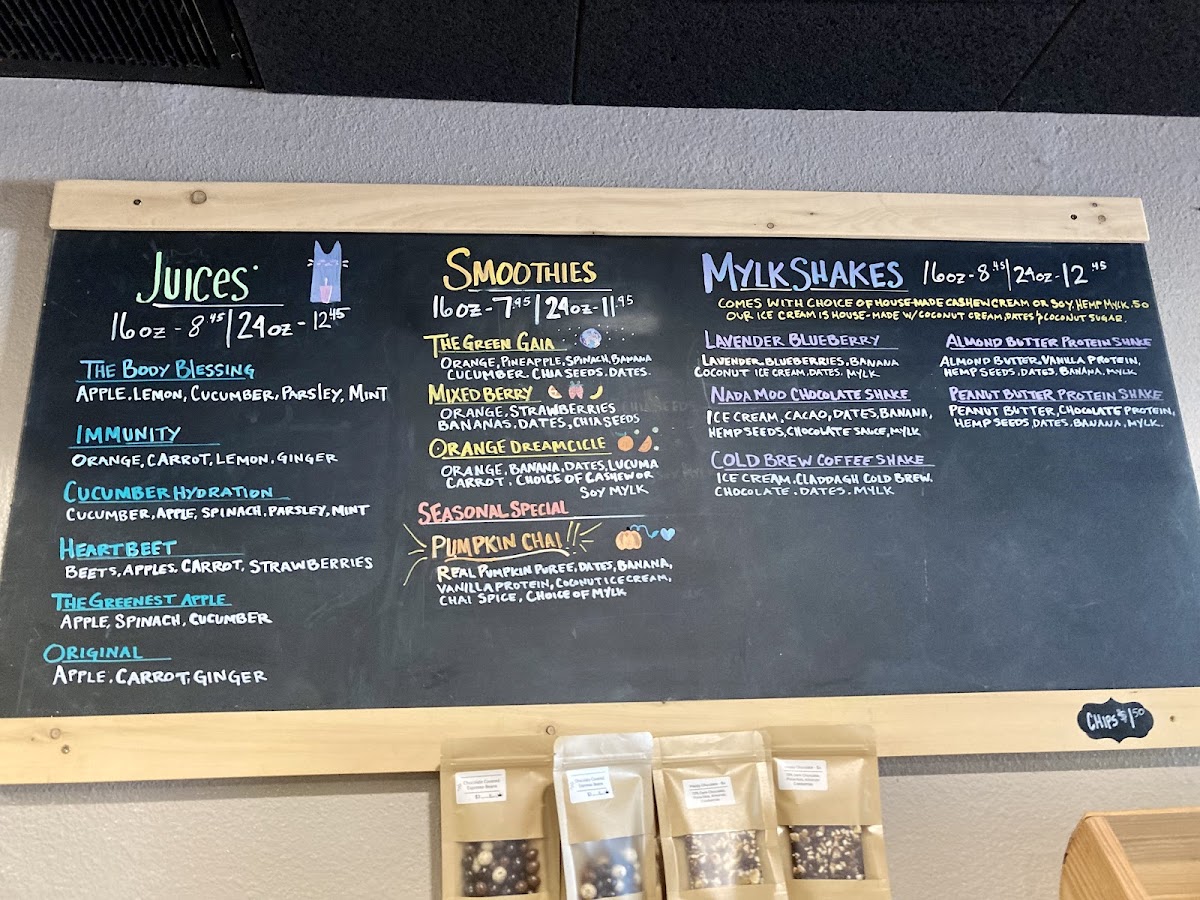 JUICES
16oz - 8.45 | 24oz - 12.45
THE BODY BLESSING
APPLE, LEMON, CUCUMBER, PARSLEY, MINT
IMMUNITY
ORANGE, CARROT, LEMON, GINGER
CUCUMBER HYDRATION
CUCUMBER, APPLE, SPINACH, PARSLEY, MINT
HEART BEET
BEETS, APPLES, CARROT, STRAWBERRIES
THE GREENEST APPLE
APPLE, SPINACH, CUCUMBER
ORIGINAL
APPLE, CARROT, GINGER
SMOOTHIES
16oz - 7.95 | 24oz - 11.95
THE GREEN GAIA
ORANGE, PINEAPPLE, SPINACH, BANANA
CUCUMBER. CHIA SEEDS, DATES.
MIXED BERRY
ORANGE, STRAWBERRIES
BANANAS, DATES, CHIA SEEDS
ORANGE DREAMCICLE
ORANGE, BANANA, DATES, LUCUMA
CARROT. CHOICE OF CASHEW OR
SOY MYLK
SEASONAL SPECIAL
PUMPKIN CHAI!!
REAL PUMPKIN PUREE, DATES, BANANA,
VANILLA PROTEIN, COCONUT ICE CREAM,
CHAI SPICE, CHOICE OF MYLK
MYLKSHAKES 16oz - 8.45 | 24oz - 12.45
COMES WITH CHOICE OF HOUSE-MADE CASHEW CREAM OR SOY. HEMP MYLK .50
OUR ICE CREAM IS HOUSE-MADE W/ COCONUT CREAM, DATES & COCONUT SUGAR.
LAVENDER BLUEBERRY
LAVENDER. BLUEBERRIES, BANANA
COCONUT ICE CREAM, DATES, MYLK
NADA MOO CHOCOLATE SHAKE
ICE CREAM, CACAO, DATES, BANANA,
HEMP SEEDS, CHOCOLATE SAUCE, MYLK
COLD BREW COFFEE SHAKE
ICE CREAM. CLADDAGH COLD BREW.
CHOCOLATE. DATES. MYLK
ALMOND BUTTER PROTEIN SHAKE
ALMOND BUTTER, VANILLA PROTEIN,
HEMP SEEDS, DATES, BANANA, MYLK
PEANUT BUTTER PROTEIN SHAKE
PEANUT BUTTER, CHOCOLATE PROTEIN,
HEMP SEEDS, DATES. BANANA, MYLK.
CHIPS $1.50